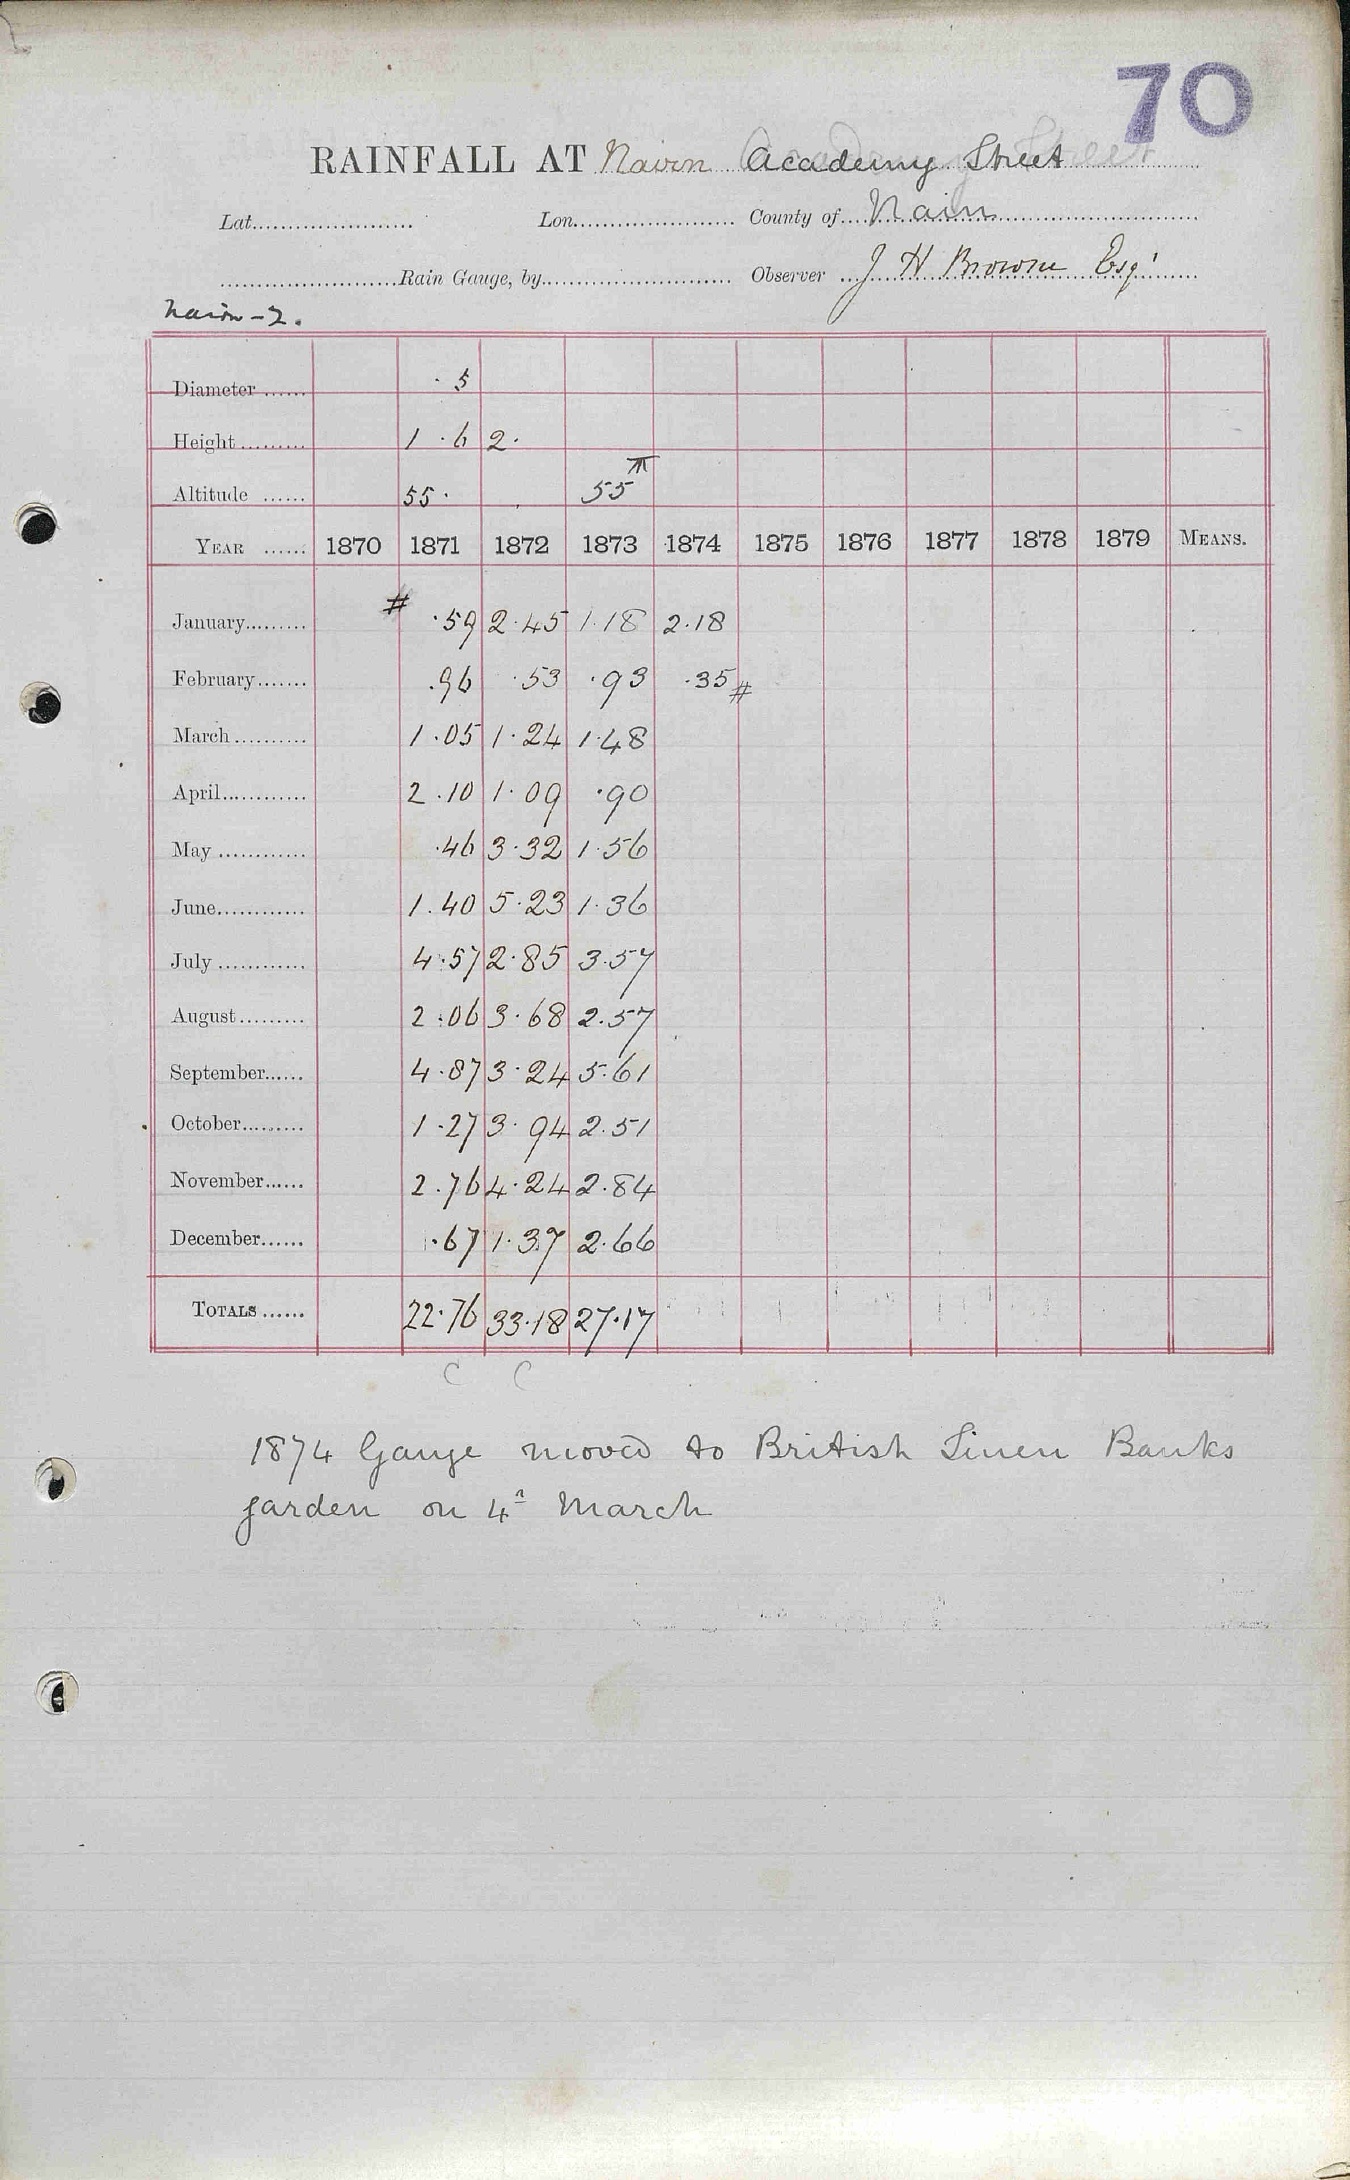 70
RAINFALL AT Nairn Academy Street
Lat...................... Lon...................... County of....Nairn
........................Rain Gauge, by.......................... Observer ...J H Browne Esqr
Nairn-2.
Diameter ...... · 5
Height......... 1 · 6 2 ·
Altitude ...... 55 · 55
YEAR ...... 1870 1871 1872 1873 1874 1875 1876 1877 1878 1879 MEANS.
January......... # ·59 2·45 1·18 2·18
February....... ·96 ·53 ·93 ·35 #
March.......... 1·05 1·24 1·48
April............ 2·10 1·09 ·90
May ............ ·46 3·32 1·56
June............ 1.40 5·23 1·36
July ............ 4·57 2·85 3·57
August......... 2·06 3·68 2.57
September...... 4·87 3·24 5·61
October......... 1·27 3·94 2·51
November...... 2·76 4·24 2·84
December...... ·67 1·37 2·66
TOTALS ...... 22·76 33·18 27·17
C C
1874 Gauge moved to British Linen Banks
garden on 4th March